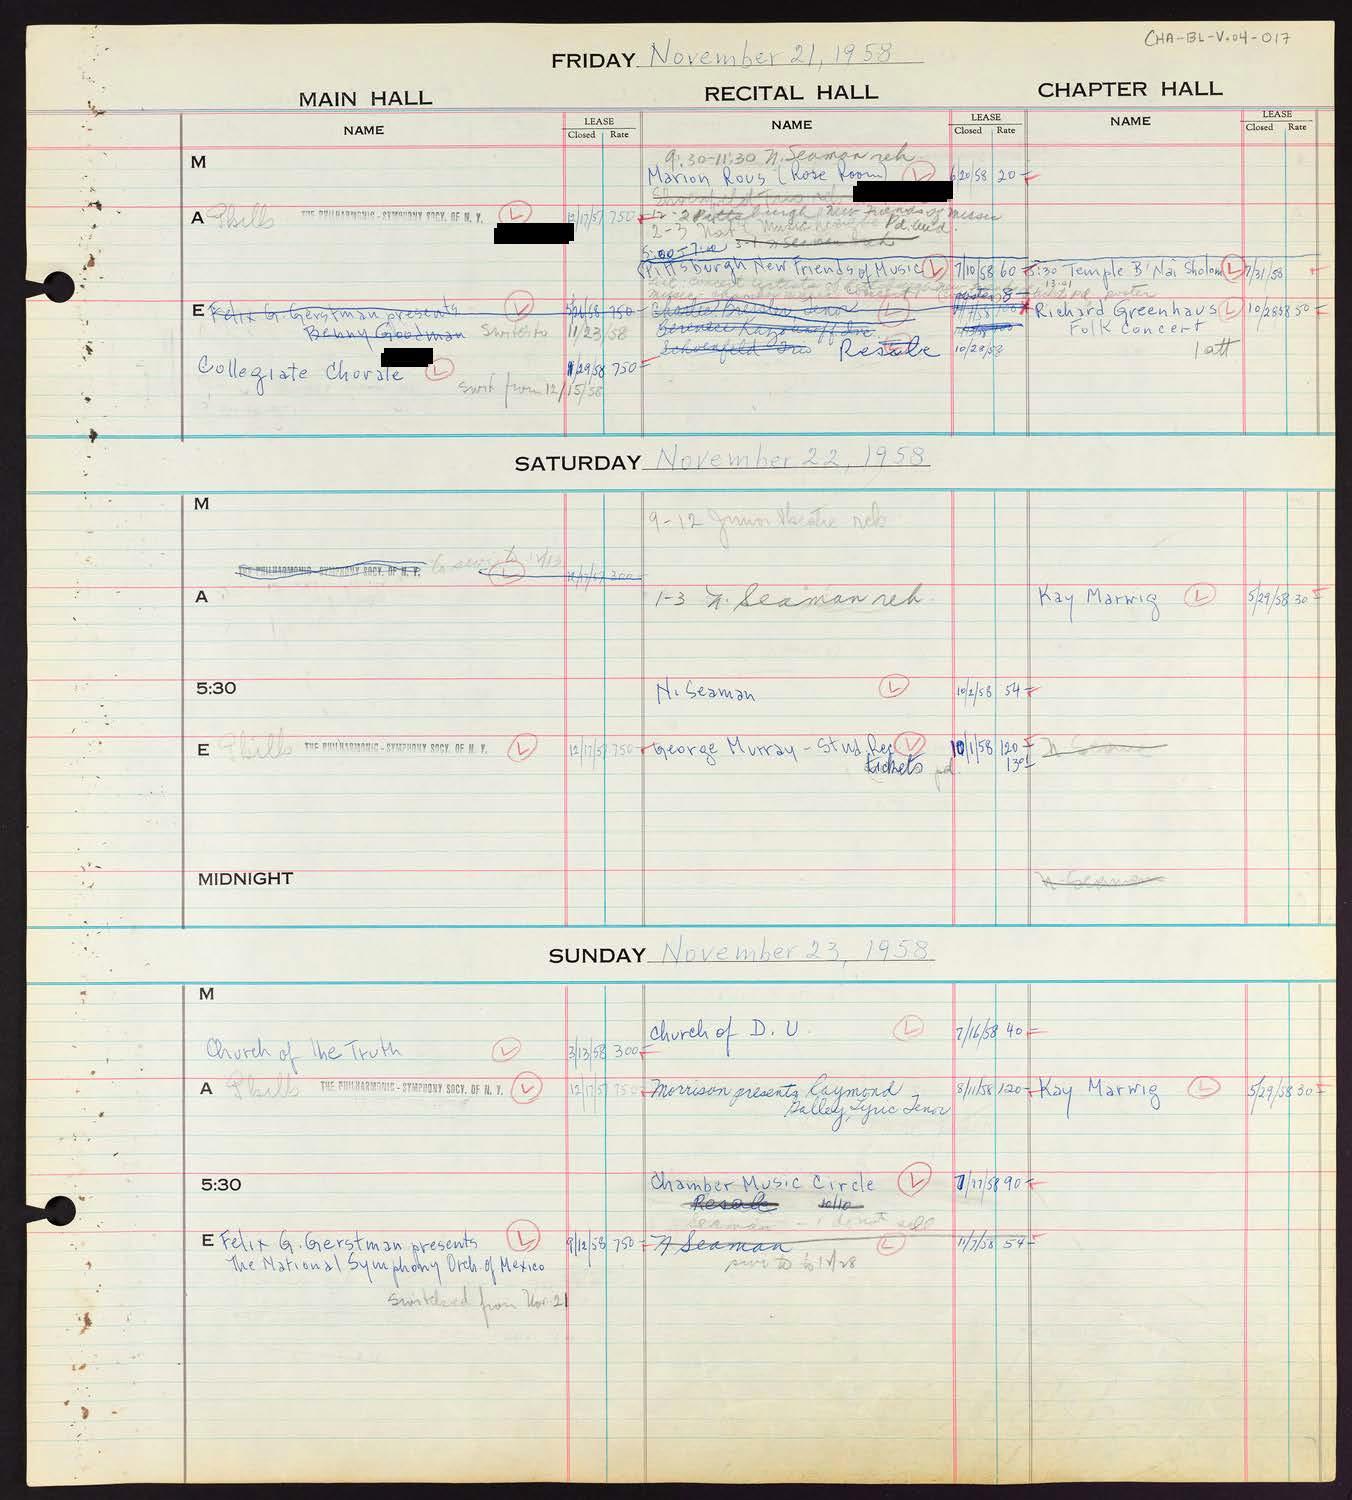 CHA-BL-V.04-017
FRIDAY November 21, 1958
MAIN HALL
RECITAL HALL
CHAPTER HALL
NAME
LEASE
Closed Rate
NAME
LEASE
Closed Rate
NAME
LEASE
Closed Rate
M
9:30-11:30 N. Seaman reh
Marion Rous (Rose Room) L 6/20/58 20-
Schoenfeld Trio reh.
A Phills THE PHILHARMONIC-SYMPHONY SOCY. OF N. Y. L 12/17/57 750-
12-2 Pittsburgh New Friends of Music
2-3 Nat'l Music Pd.
5:00-7:00 3-4 N Seaman reh
Pittsburgh New Friends of Music L 7/10/58 60-
5:30 Temple B'Nai Sholom L 7/31/58
13.01
poster
E Felix G. Gerstman presents L 750-
Benny Goodman Switch to 11/23/58
Charles Bressler, Tenor L
Schoenfeld Trio Resale 10/28/58
Richard Greenhaus L 10/28/58 50-
Folk Concert
1 att
Collegiate Chorale L 1/29/58 750-
swit from 12/15/58
SATURDAY November 22, 1958
M
9-12 Junior theatre reh
THE PHILHARMONIC-SYMPHONY SOCY. OF N. Y. L 12/17/57 300-
A
1-3 N. Seaman reh.
Kay Marwig L 5/29/58 30-
5:30
N. Seaman L 10/2/58 54-
E Phills THE PHILHARMONIC-SYMPHONY SOCY. OF N. Y. L 12/17/57 750-
George Murray - Stud. Rec L 10/1/58 120-
tickets pd. 13.01
N Seaman
MIDNIGHT
N Seaman
SUNDAY November 23, 1958
M
Church of D. U. L 7/16/58 40-
Church of the Truth L 3/13/58 300-
A Phills THE PHILHARMONIC-SYMPHONY SOCY. OF N. Y. L 12/17/57 750-
Morrison presents Raymond 8/11/58 120-
Lyric Tenor
Kay Marwig L 5/29/58 30-
5:30
Chamber Music Circle L 7/17/58 90-
Resale 10/10
Seaman
E Felix G. Gerstman presents L 9/12/58 750-
The National Symphony Orch. of Mexico
switched from Nov. 21
N Seaman L 11/7/58 54-